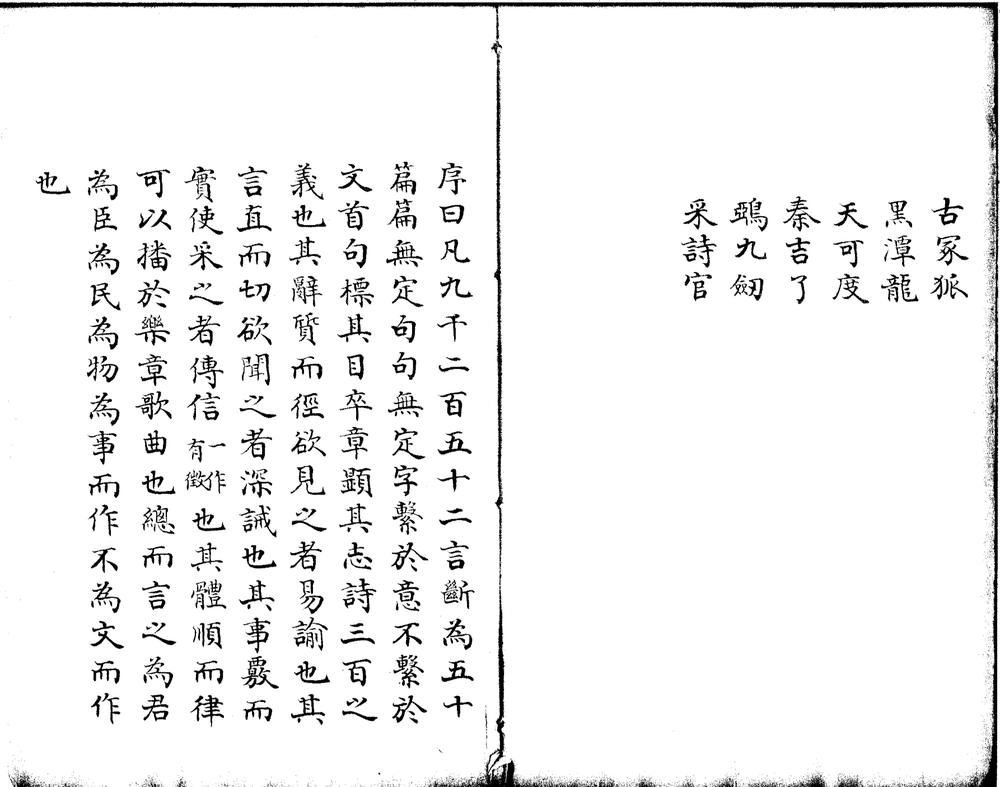 古冢狐
黑潭龍
天可度
秦吉了
鵶九劒
采詩官
序曰凡九千二百五十二言斷為五十
篇篇無定句句無定字繫於意不繫於
文首句標其目卒章顕其志詩三百之
義也其辭質而徑欲見之者易諭也其
言直而切欲聞之者深誡也其事覈而
實使采之者傳信一作有徴也其體順而律
可以播於樂章歌曲也總而言之為君
為臣為民為物為事而作不為文而作
也